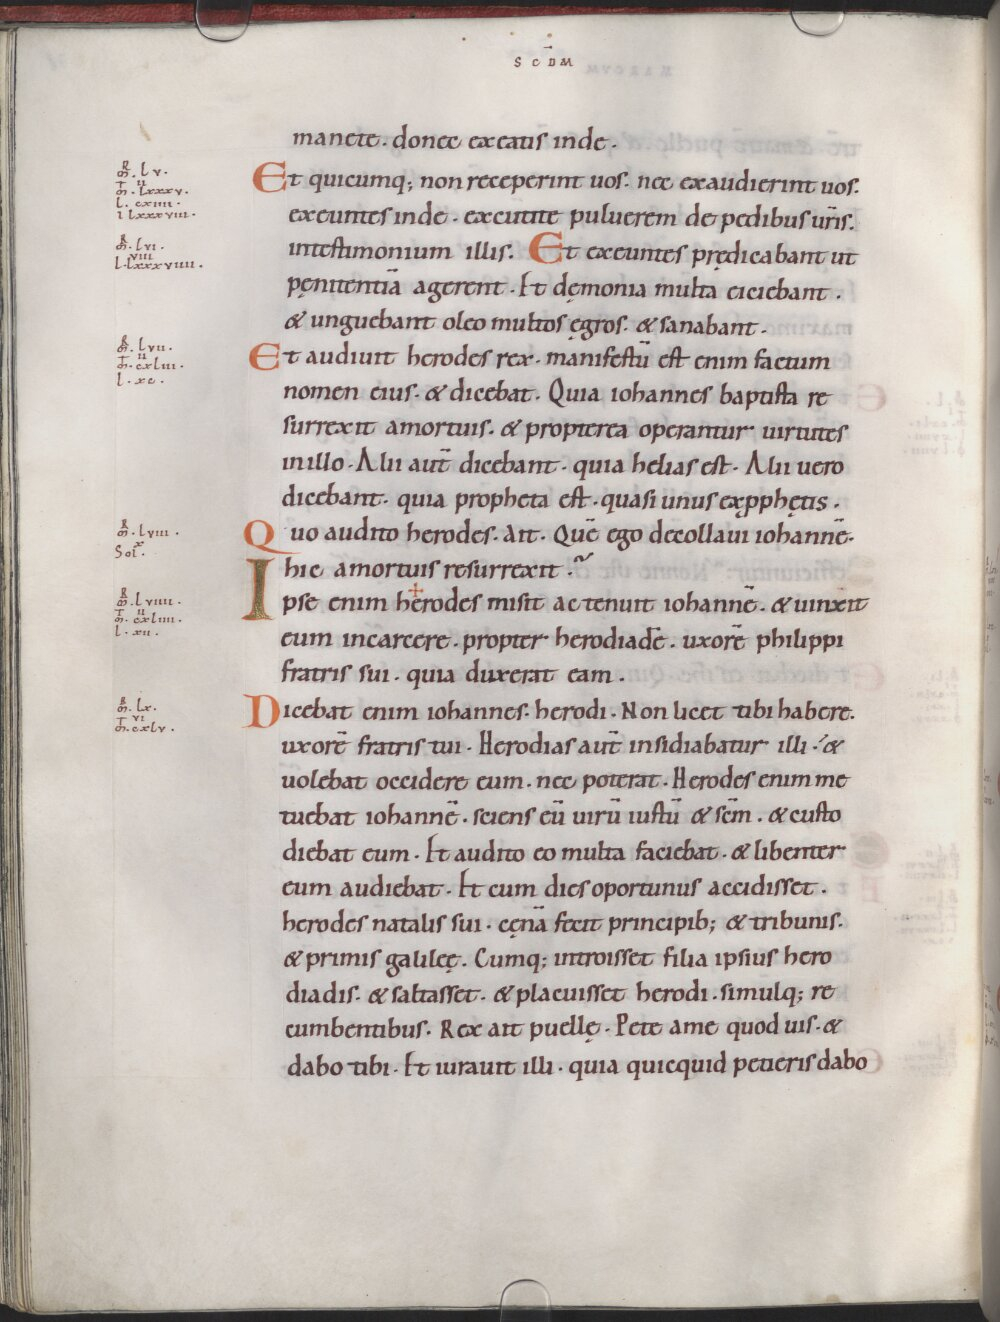 SCDM
manete. donec exeatis inde.
m̄. lv.
m̄. lxxxv.
ii
l. cxiiii
i lxxxviii.
Et quicumq; non receperint uos. nec exaudierint uos.
exeuntes inde. excutite puluerem de pedibus ur̄is.
m̄. lvi.
viii
l. lxxxviiii.
intestimonium illis. Et exeuntes prędicabant ut
pęnitentiā agerent. Et dęmonia multa eiciebant.
& unguebant oleo multos ęgros. & sanabant.
m̄. lvii.
ii
m̄. cxliii.
l. xc.
Et audiuit herodes rex. manifestū est enim factum
nomen eius. & dicebat. Quia iohannes baptista re
surrexit amortuis. & propterea operantur uirtutes
inillo. Alii aut̄ dicebant. quia helias est. Alii uero
dicebant. quia propheta est. quasi unus exp̱phętis.
m̄. lviii.
x
Sol.
Quo audito herodes. Ait. Quē ego decollaui iohannē.
hic amortuis resurrexit.
m̄. lviiii.
ii
m̄. cxliiii.
l. xii.
Ipse enim herodes misit ac tenuit iohannē. & uinxit
eum incarcere. propter herodiadē. uxorē philippi
fratris sui. quia duxerat eam.
m̄. lx.
vi
m̄. cxlv.
Dicebat enim iohannes. herodi. Non licet tibi habere.
uxorē fratris tui. Herodias aut̄ insidiabatur illi. &
uolebat occidere eum. nec poterat. Herodes enim me
tuebat iohannē. sciens eū uirū iustū & sc̄m. & custo
diebat eum. Et audito eo multa faciebat. & libenter
eum audiebat. Et cum dies oportunus accidisset.
herodes natalis sui. cęnā fecit principib; & tribunis.
& primis galileę. Cumq; introisset filia ipsius hero
diadis. & saltasset. & placuisset herodi. simulq; re
cumbentibus. Rex ait puellę. Pete ame quod uis. &
dabo tibi. Et iurauit illi. quia quicquid petieris dabo